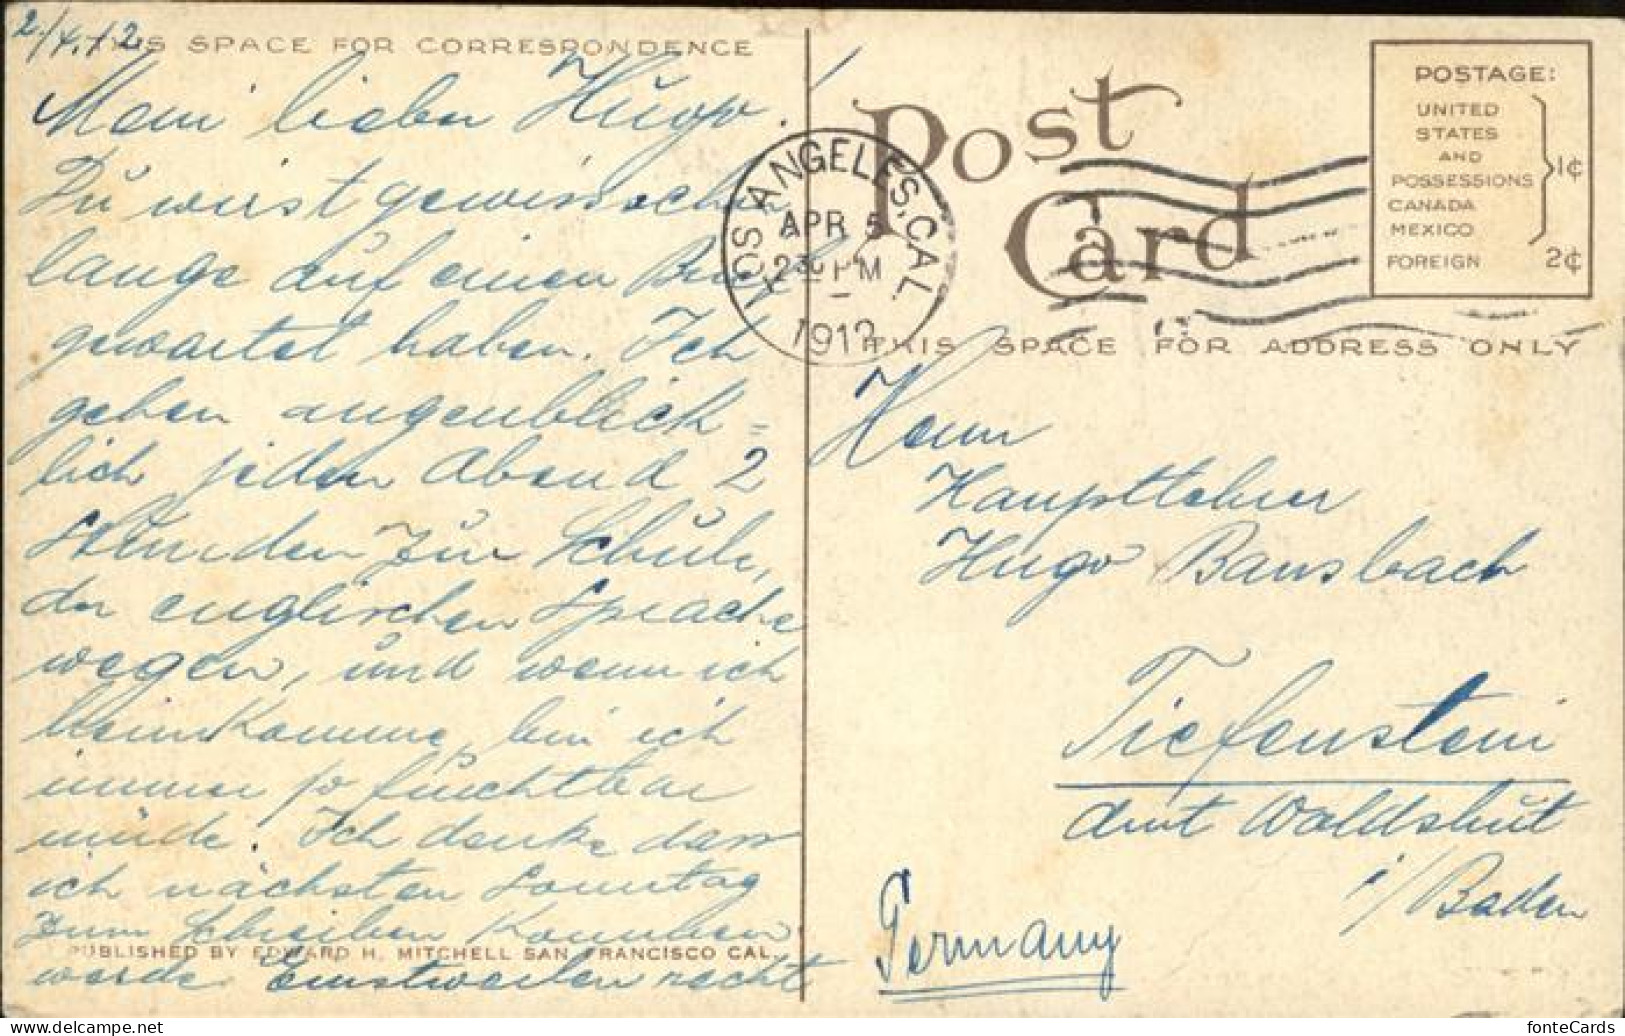 2./4.12.
THIS SPACE FOR CORRESPONDENCE
Mein lieber Hugo.
Du wirst gewiss schon
lange auf einen Brief
gewartet haben. Ich
gehen augenblick=
lich jeden Abend 2
Stunden zur Schule,
der englischen Sprache
wegen, und wenn ich
heimkomme, bin ich
immer so furchtbar
müde. Ich denke dass
ich nächsten Sonntag
zum Schreiben kommen
werde. Einstweilen recht
PUBLISHED BY EDWARD H. MITCHELL SAN FRANCISCO CAL.
Post
Card
LOS ANGELES, CAL.
APR 5
230 PM
1912
POSTAGE:
UNITED
STATES
AND
POSSESSIONS 1¢
CANADA
MEXICO
FOREIGN 2¢
THIS SPACE FOR ADDRESS ONLY
Herrn
Hauptlehrer
Hugo Bausbach
Tiefenstein
Amt Waldshut
i/Baden
Germany
fonteCards
www.delcampe.net